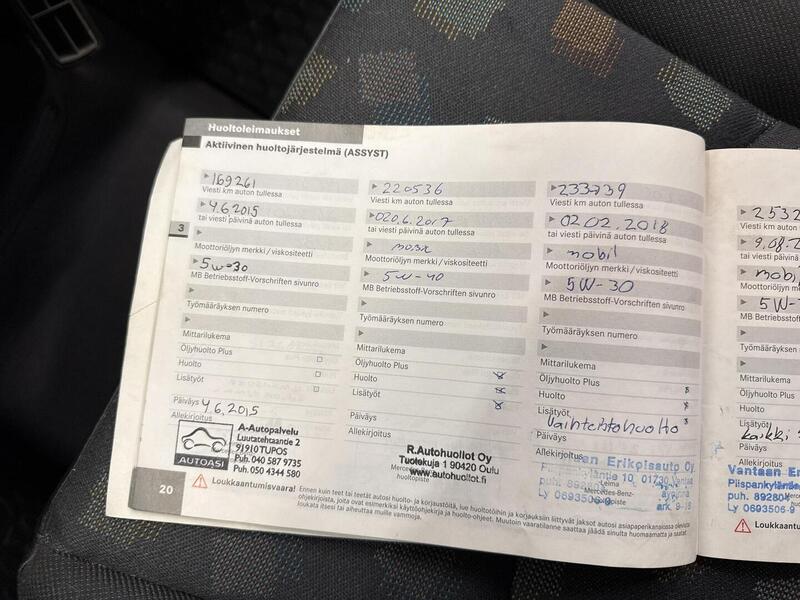 Huoltoleimaukset
Aktiivinen huoltojärjestelmä (ASSYST)
3
169261
Viesti km auton tullessa
4.6.2015
tai viesti päivinä auton tullessa
Moottoriöljyn merkki / viskositeetti
5w-30
MB Betriebsstoff-Vorschriften sivunro
Työmääräyksen numero
Mittarilukema
Öljyhuolto Plus
Huolto
Lisätyöt
Päiväys 4.6.2015
Allekirjoitus
A-Autopalvelu
Luutatehtaantie 2
91910 TUPOS
Puh. 040 587 9735
Puh. 050 4344 580
AUTOASI
220536
Viesti km auton tullessa
020.6.2017
tai viesti päivinä auton tullessa
Moottoriöljyn merkki / viskositeetti
5W-40
MB Betriebsstoff-Vorschriften sivunro
Työmääräyksen numero
Mittarilukema
Öljyhuolto Plus
Huolto
Lisätyöt
Päiväys
Allekirjoitus
R.Autohuollot Oy
Tuotekuja 1 90420 Oulu
www.autohuollot.fi
huoltopiste
233739
Viesti km auton tullessa
02 02.2018
tai viesti päivinä auton tullessa
mobil
Moottoriöljyn merkki / viskositeetti
5W-30
MB Betriebsstoff-Vorschriften sivunro
Työmääräyksen numero
Mittarilukema
Öljyhuolto Plus
Huolto
Lisätyöt
Vaihteistohuolto
Päiväys
Allekirjoitus
Erikoisauto Oy
10, 01730 Vantaa
puh.
Leima
Mercedes-Benz-
Ly 0693506-9
ark. 9-18
2532
9.08.2
mobil
5W-
Öljyhuolto
Huolto
Lisätyöt
kaikki
Päiväys
Allekirjoitus
Vantaan
puh. 892804
Ly 0693506-9
20
Loukkaantumisvaara! Ennen kuin teet tai teetät autosi huolto- ja korjaustöitä, lue huoltotöihin ja korjauksiin liittyvät jaksot autosi asiapaperikansiossa olevista
ohjekirjoista, joita ovat esimerkiksi käyttöohjekirja ja huolto-ohjeet. Muutoin vaaratilanne saattaa jäädä sinulta huomaamatta ja saatat
loukata itsesi tai aiheuttaa muille vammoja.